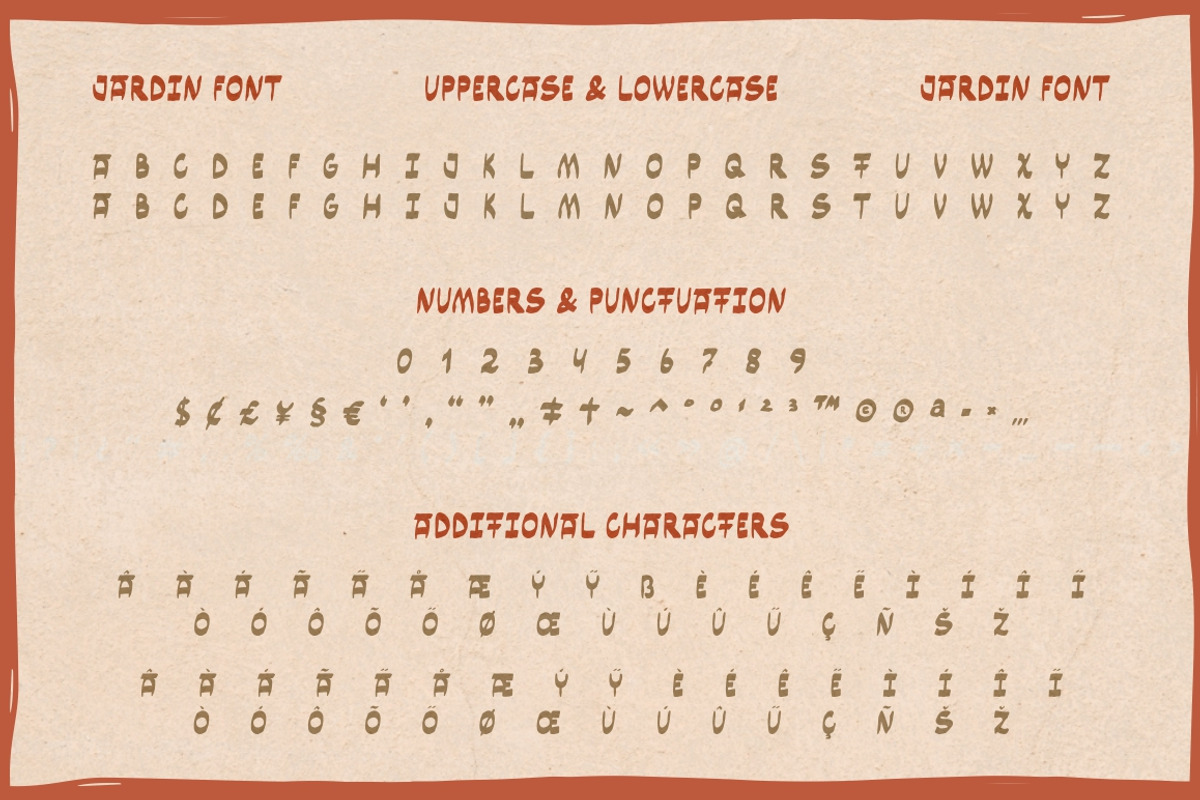 JARDIN FONT UPPERCASE & LOWERCASE JARDIN FONT
A B C D E F G H I J K L M N O P Q R S T U V W X Y Z
A B C D E F G H I J K L M N O P Q R S T U V W X Y Z
NUMBERS & PUNCTUATION
0 1 2 3 4 5 6 7 8 9
$ ¢ £ ¥ § € ‘ ’ , “ ” „ ‡ † ~ ^ º ⁰ ¹ ² ³ ™ © ® ª . * …
ADDITIONAL CHARACTERS
 À Á Ã Ä Å Æ Ý Ÿ ß È É Ê Ë Ì Í Î Ï
Ò Ó Ô Õ Ö Ø Œ Ù Ú Û Ü Ç Ñ Š Ž
 À Á Ã Ä Å Æ Ý Ÿ È É Ê Ë Ì Í Î Ï
Ò Ó Ô Õ Ö Ø Œ Ù Ú Û Ü Ç Ñ Š Ž